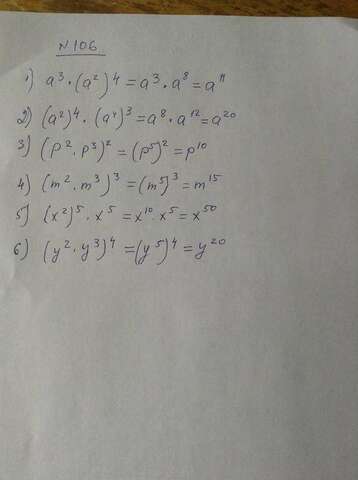 N 106
1) a³ · (a²)⁴ = a³ · a⁸ = a¹¹
2) (a²)⁴ · (a⁴)³ = a⁸ · a¹² = a²⁰
3) (p² · p³)² = (p⁵)² = p¹⁰
4) (m² · m³)³ = (m⁵)³ = m¹⁵
5) (x²)⁵ · x⁵ = x¹⁰ · x⁵ = x⁵⁰
6) (y² · y³)⁴ = (y⁵)⁴ = y²⁰